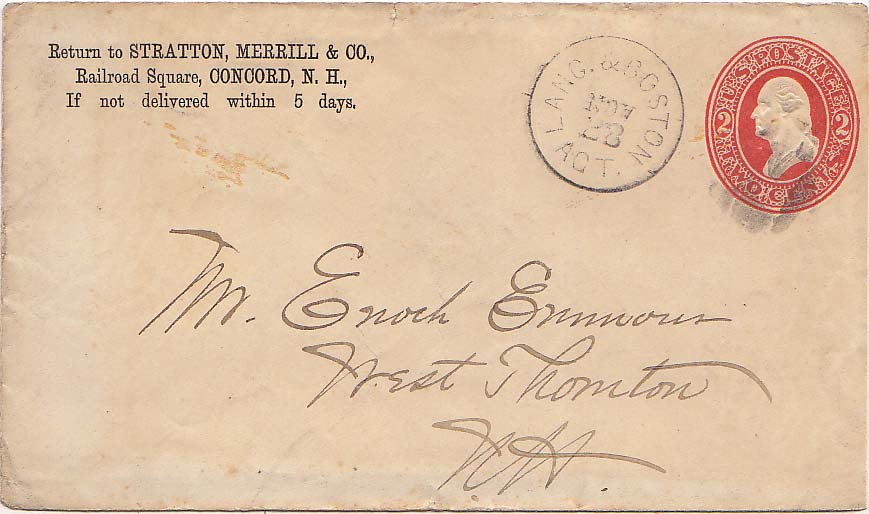 Return to STRATTON, MERRILL & CO.,
Railroad Square, CONCORD, N. H.,
If not delivered within 5 days.
LANC. & BOSTON
NOV
28
AGT.
U.S. POSTAGE
2 2
Mr. Enoch
West Thornton
N.H.